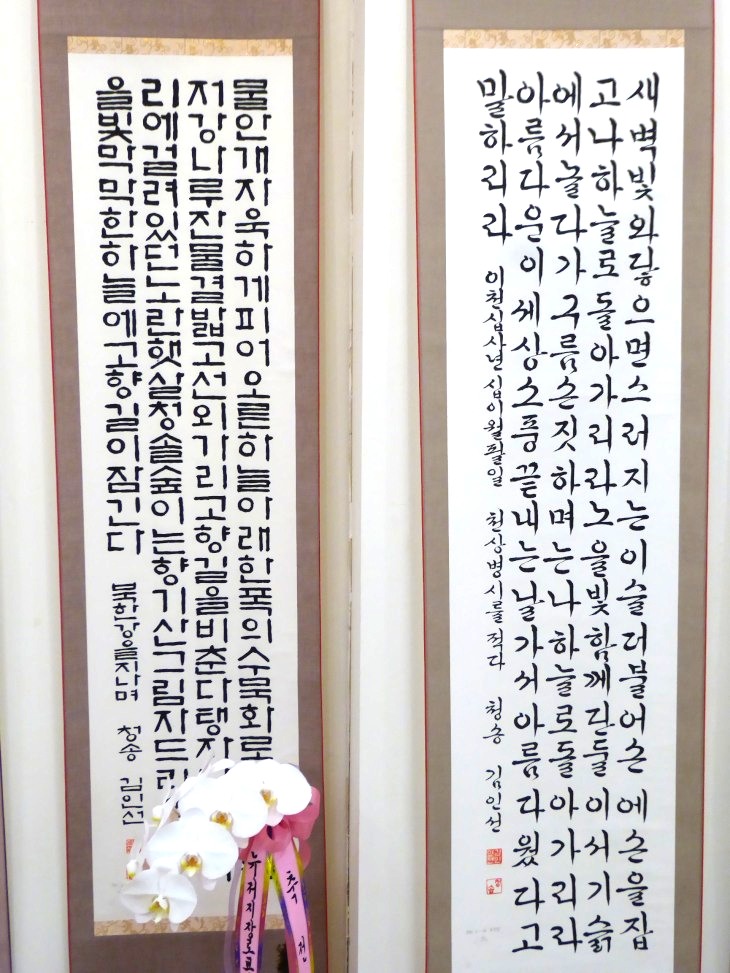 물안개자욱하게피어오른하늘아래한폭의수묵화로
저강나루잔물결밟고선외가리고향길을비춘다탱자
리에걸려있던노란햇살청솔숲이는향기산그림자드리
을빛막막한하늘에고향길이잠긴다
북한강을지나며 청송 김인선
뉴저지장로교
새벽빛와닿으면스러지는이슬더불어손에손을잡
고나하늘로돌아가리라노을빛함께단둘이서기슭
에서놀다가구름손짓하며는나하늘로돌아가리라
아름다운이세상소풍끝내는날가서아름다웠다고
말하리라 이천십사년 십이월팔일 천상병시를 적다 청송 김인선